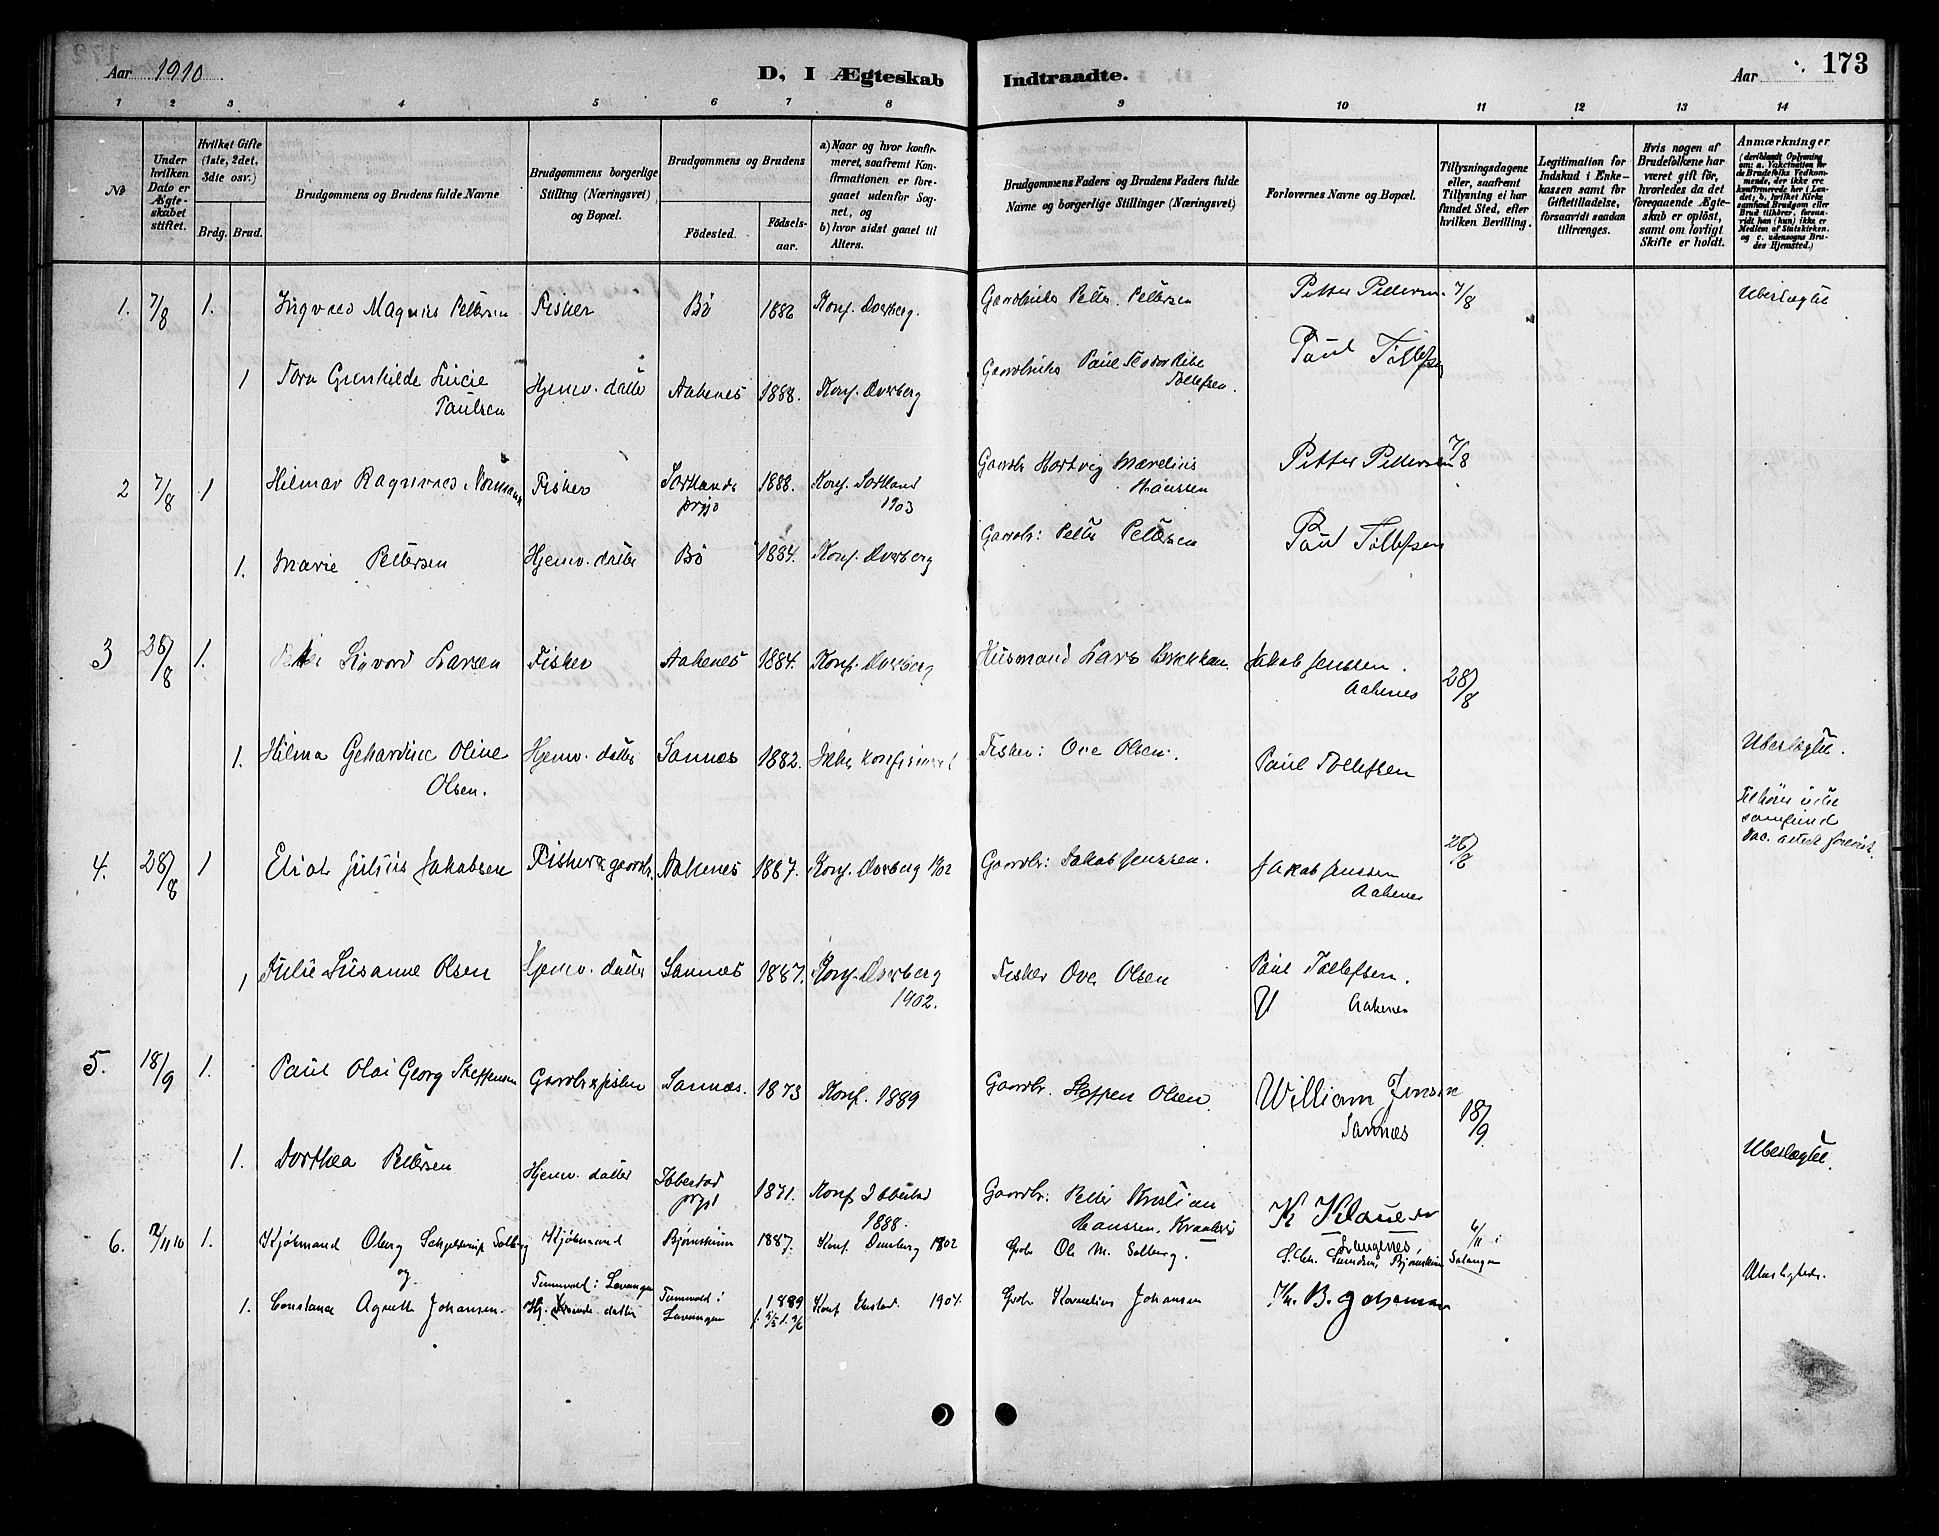 Aar 1910
D, I Ægteskab Indtraadte.
Aar
173
1 2 3 4 5 6 7 8 9 10 11 12 13 14
No
Under hvilken Dato er Ægteskabet stiftet.
Hvilket Gifte (1ste, 2det, 3die osv.)
Brdg. Brud.
Brudgommens og Brudens fulde Navne
Brudgommens borgerlige Stilling (Næringsvei) og Bopæl.
Brudgommens og Brudens
Fødested.
Fødselsaar.
a) Naar og hvor konfirmeret, saafremt Konfirmationen er foregaaet udenfor Sognet, og
b) hvor sidst gaaet til Alters.
Brudgommens Faders og Brudens Faders fulde Navne og borgerlige Stillinger (Næringsvei)
Forlovernes Navne og Bopæl.
Tillysningsdagene eller, saafremt Tillysning ei har fundet Sted, efter hvilken Bevilling.
Legitimation for Indskud i Enkekassen samt for Giftetilladelse, forsaavidt saadan tiltrænges.
Hvis nogen af Brudefolkene har været gift før, hvorledes da det foregaaende Ægteskab er opløst, samt om lovligt Skifte er holdt.
Anmærkninger (deriblandt Oplysning om: a. Vakcination for de Brudefolks Vedkommende, der ikke ere konfirmerede her i Landet; b. hvilket Kirkesamfund Brudgom eller Brud tilhører, forsaavidt han (hun) ikke er Medlem af Statskirken. og c. udensogns Brudes Hjemsted.)
1. 7/8 1. Ingvald Magnus Pettersen Fisker Bö 1886 Konf. Dverberg. Gaardbruker Petter Pettersen Petter Pedersen 7/8 Ubeslægtet
1 Tora Gunhilde Lucie Paulsen Hjemv. datter Aakenes 1888. Konf. Dverberg Gaardbruker Paul Tollefsen Paul Tollefsen
2 7/8 1 Hilmar Ragnvald Normann Fisker Sortlands prgj. 1888. Konf. Sortland 1903 Gaardbr Hartvig Marelius Hanssen Petter Pedersen 7/8
1. Marie Pettersen Hjemv. datter Bö 1884. Konf. Dverberg Gaardbr: Petter Pettersen Paul Tollefsen
3 28/8 1. Sigvard Larsen Fisker Aakenes 1884. Konf. Dverberg Husmand Lars Jakob Jenssen. Aakenes 28/8
1. Hilma Gehardine Oline Olsen. Hjemv. datter Sannes 1882. Ikke konfirmert Fisker: Ove Olsen. Paul Tollefsen Ubeslægtet.
Tilhører intet samfund
Vac. attest forevist.
4. 28/8 1 Eliot Julius Jakobsen Fisker & gaardbr. Aakenes 1887. Konf. Dverberg 1902 Gaardbr: Jakob Jenssen. Jakob Jenssen Aakenes 28/8
1 Julie Susanne Olsen Hjemv. datter Sannes 1887. Konf. Dverberg 1902. Fisker Ove Olsen Paul Tollefsen. Aakenes
5. 18/9 1. Paul Olai Georg Steffensen Gaardbr & fisker Sannes. 1873 Konf. 1889 Gaardbr. Steffen Olsen. William Jensen Sannes 18/9
1. Dorthea Pettersen Hjemv. datter Ibbestad prgj. 1871. Konf Ibbestad 1888. Gaardbr: Petter Kristian Hanssen, K Klausen Langenes, Ubeslægtet.
6. 1. Kjøbmand Oberg Schjelderup Solberg Kjøbmand Bjørnskinn 1887. Konf Dverberg 1902 Gbr Ole M. Solberg. Bjørnskinn 6/11 i Salangen
og
1. Constance Agnete Johansen. Hj. datter Lavangen 1889 Konf Ibestad 1904. Gbr Kornelius Johansen B. Johansen Ubeslægtede.